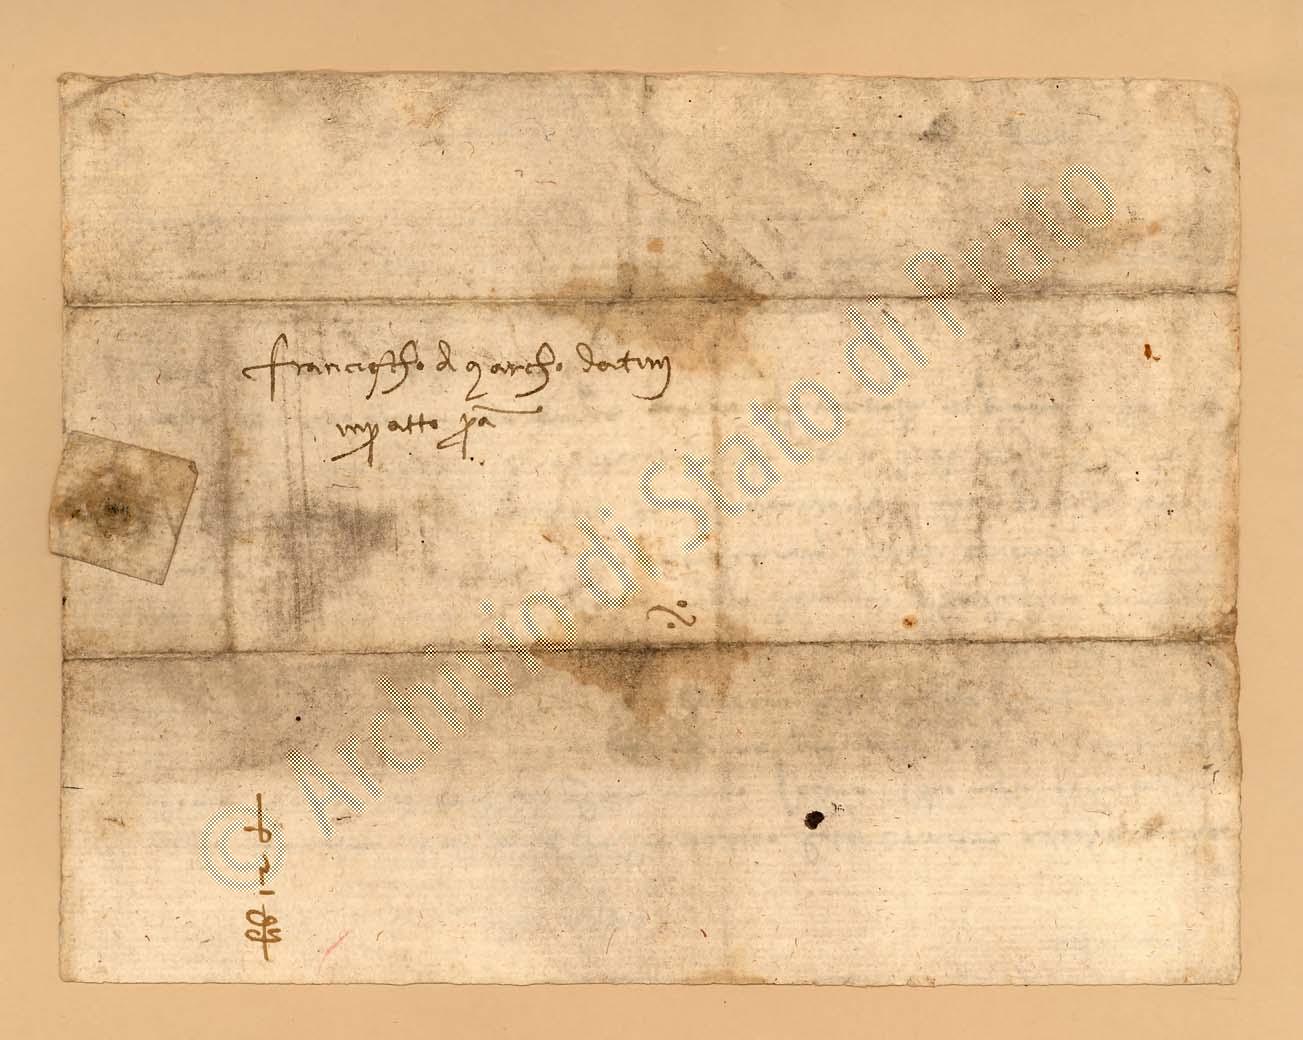 Franciescho di Marcho Datini
in Pratto propia
© Archivio di Stato di Prato